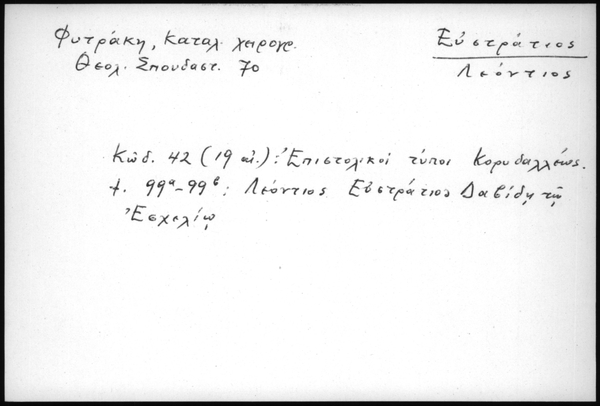 Φυτράκη, Καταλ. χειρογρ.
Θεολ. Σπουδαστ. 70
Εὐστράτιος
Λεόντιος
Κῶδ. 42 (19 αἰ.): Ἐπιστολικοί τύποι Κορυδαλλέως.
f. 99α-99β: Λεόντιος Εὐστράτιος Δαβίδῃ τῷ
Ἐσχελίῳ